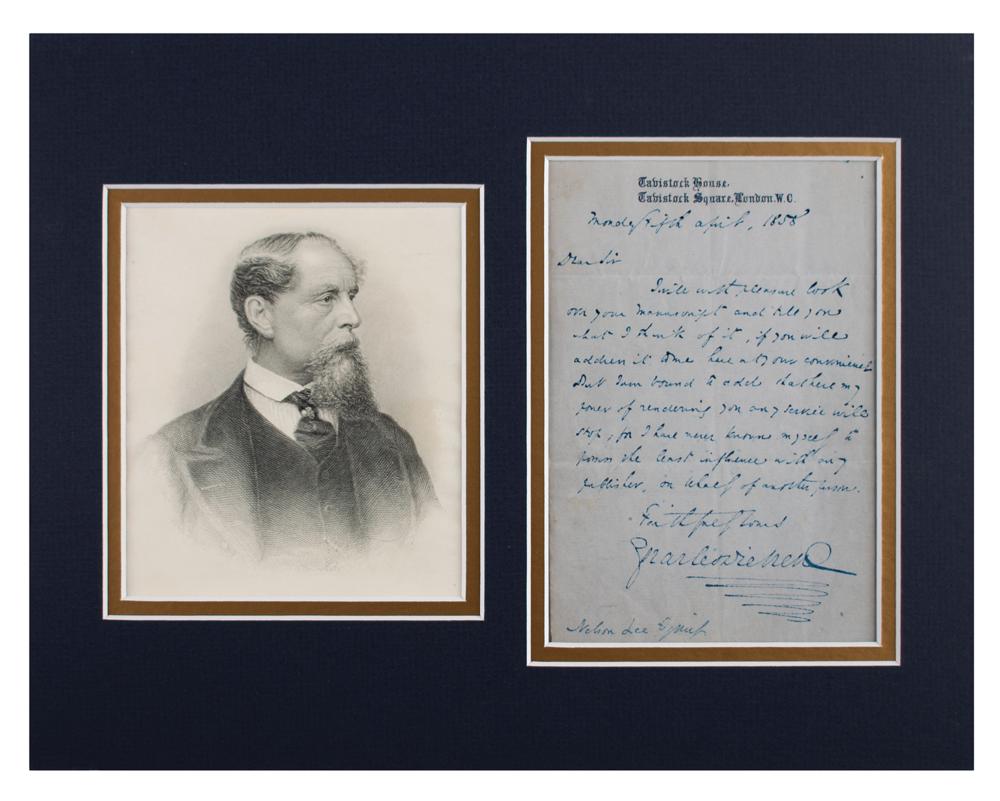 Tavistock House,
Tavistock Square, London. W.C.
Monday Fifth April, 1858
Dear Sir
I will with pleasure look
over your manuscript and tell you
what I think of it, if you will
address it to me here at your convenience
But I am bound to add that here my
power of rendering you any service will
stop, for I have never known myself to
possess the least influence with any
publisher, on behalf of another person.
Faithfully Yours
Charles Dickens
Nelson Lee Esquire